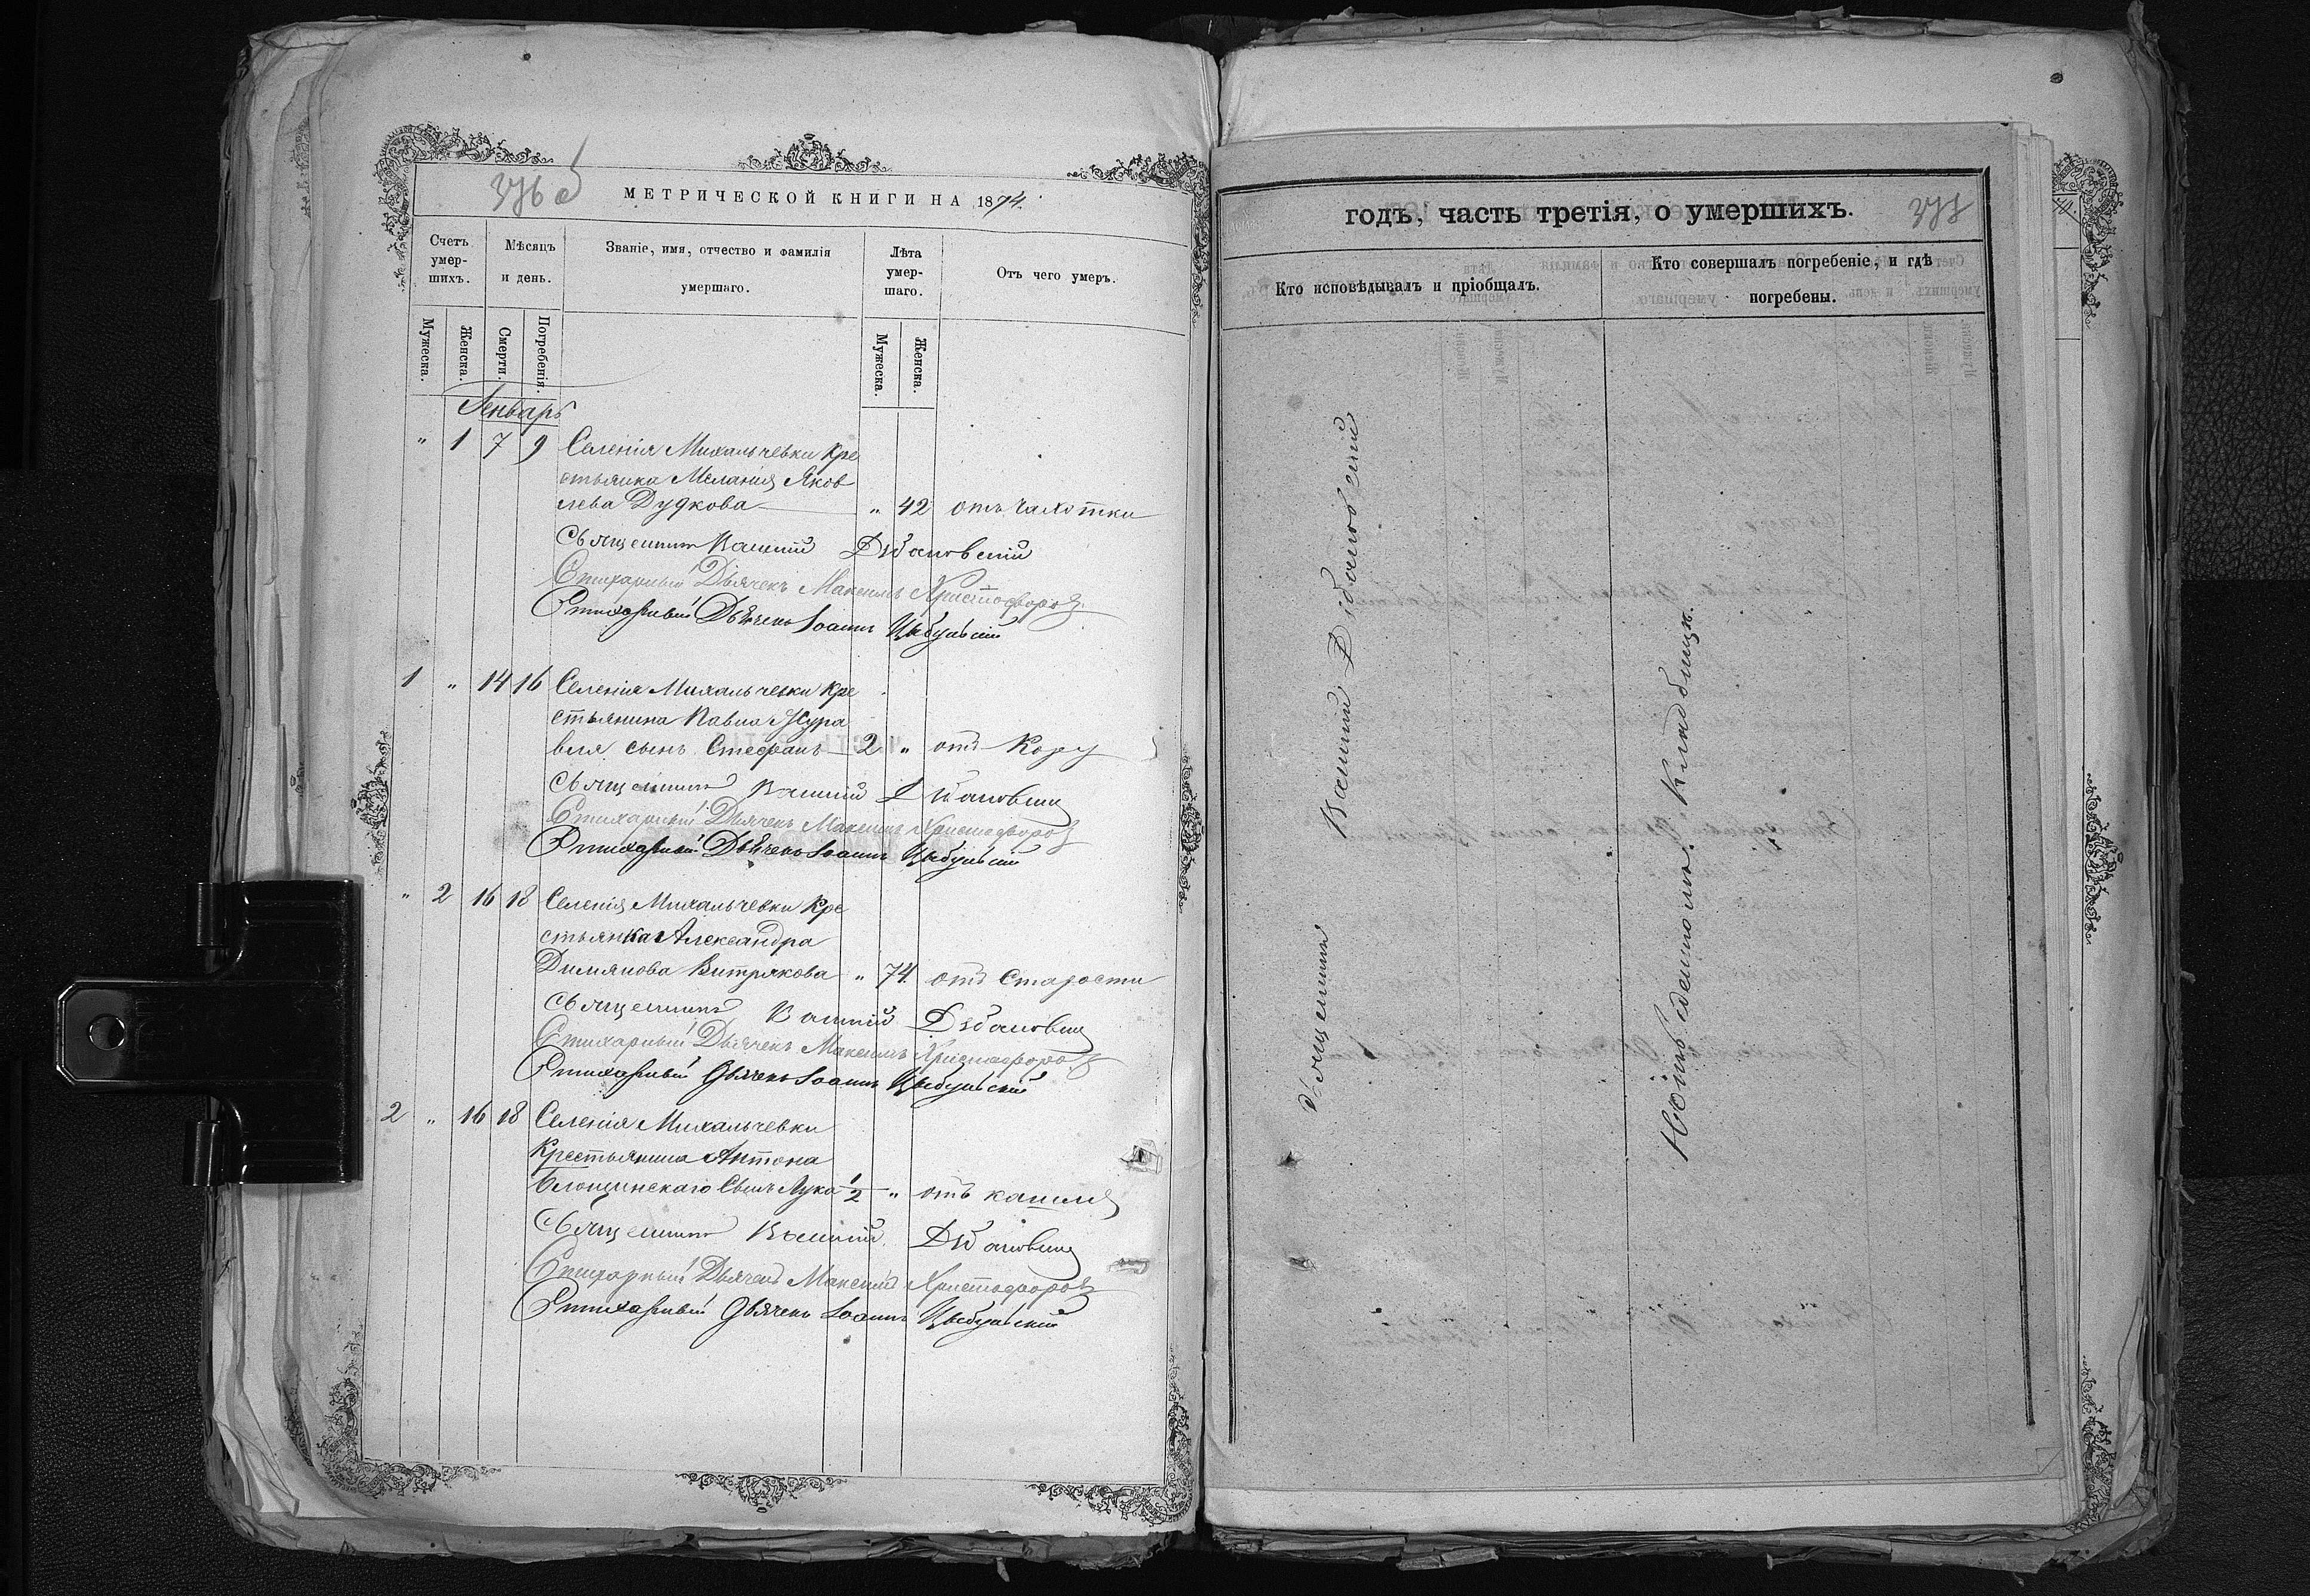 376 об
МЕТРИЧЕСКОЙ КНИГИ НА 1874.
Счетъ умер-шихъ.
Мѣсяцъ и день.
Званіе, имя, отчество и фамилія умершаго.
Лѣта умер-шаго.
Отъ чего умеръ.
Мужеска.
Женска.
Смерти.
Погребенія.
Мужеска.
Женска.
Январь
" 1 7 9 Селенія Михальчевки Кре
стьянка Меланія Яков
лева Дудкова " 42 отъ Чахотки
Священникъ Василій
Стихарный Дьячекъ Максимъ Христофоровъ
Стихарный Дьячекъ Іоаннъ Цыбульскій
1 " 14 16 Селенія Михальчевки Кре
стьянина Павла Жура
вля сынъ Стефанъ 2 " отъ Кору
Священникъ Василій
Стихарный Дьячекъ Максимъ Христофоровъ
Стихарный Дьячекъ Іоаннъ Цыбульскій
" 2 16 18 Селенія Михальчевки Кре
стьянка Александра
Димянова Витрякова " 74. отъ Старости
Священникъ Василій
Стихарный Дьячекъ Максимъ Христофоровъ
Стихарный Дьячекъ Іоаннъ Цыбульскій
2 " 16 18 Селенія Михальчевки
Крестьянина Антона
Блощинскаго Сынъ Лука 1/2 " отъ кашля
Священникъ Василій
Стихарный Дьячекъ Максимъ Христофоровъ
Стихарный Дьячекъ Іоаннъ Цыбульскій
годъ, часть третія, о умершихъ.
377
Кто исповѣдывалъ и пріобщалъ.
Кто совершалъ погребеніе, и гдѣ погребены.
Священникъ Василій
На общемъ Кладбищѣ.